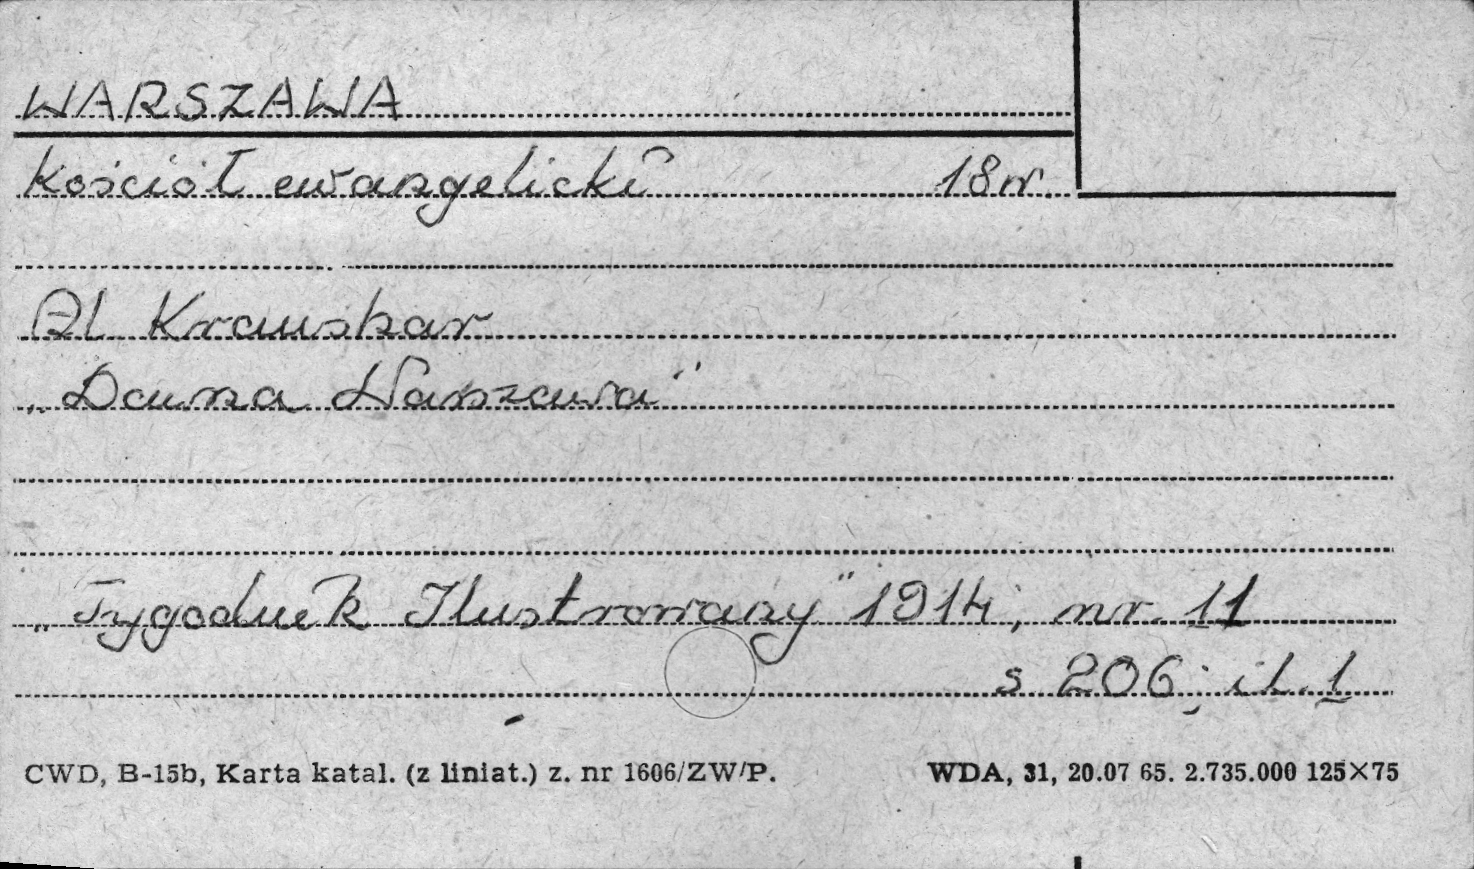 WARSZAWA
Kościół ewangelicki 18 w.
Al Kraushar
„Dawna Warszawa"
„Tygodnik Ilustrowany" 1914, nr. 11
s 206; il. 1
CWD, B-15b, Karta katal. (z liniat.) z. nr 1606/ZW/P. WDA, 31, 20.07 65. 2.735.000 125×75